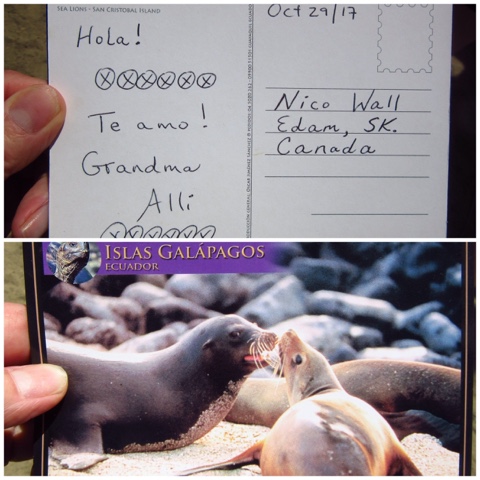 SEA LIONS - SAN CRISTOBAL ISLAND
Oct 29/17
Hola!
ⓧⓧⓧⓧⓧⓧ
Te amo!
Grandma
Alli
ⓧⓧⓧⓧⓧⓧ
Nico Wall
Edam, SK.
Canada
ISLAS GALÁPAGOS
ECUADOR